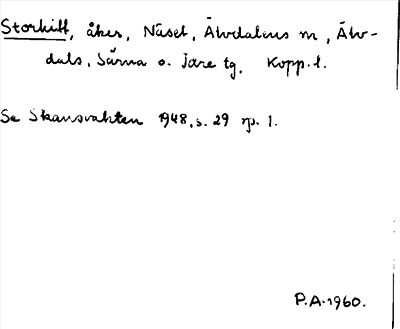 Storkitt, åker, Näset, Älvdalens m, Älv-
dals, Särna o. Idre tg. Kopp. l.
Se Skansvakten 1948, s. 29 sp. 1.
P.A. 1960.